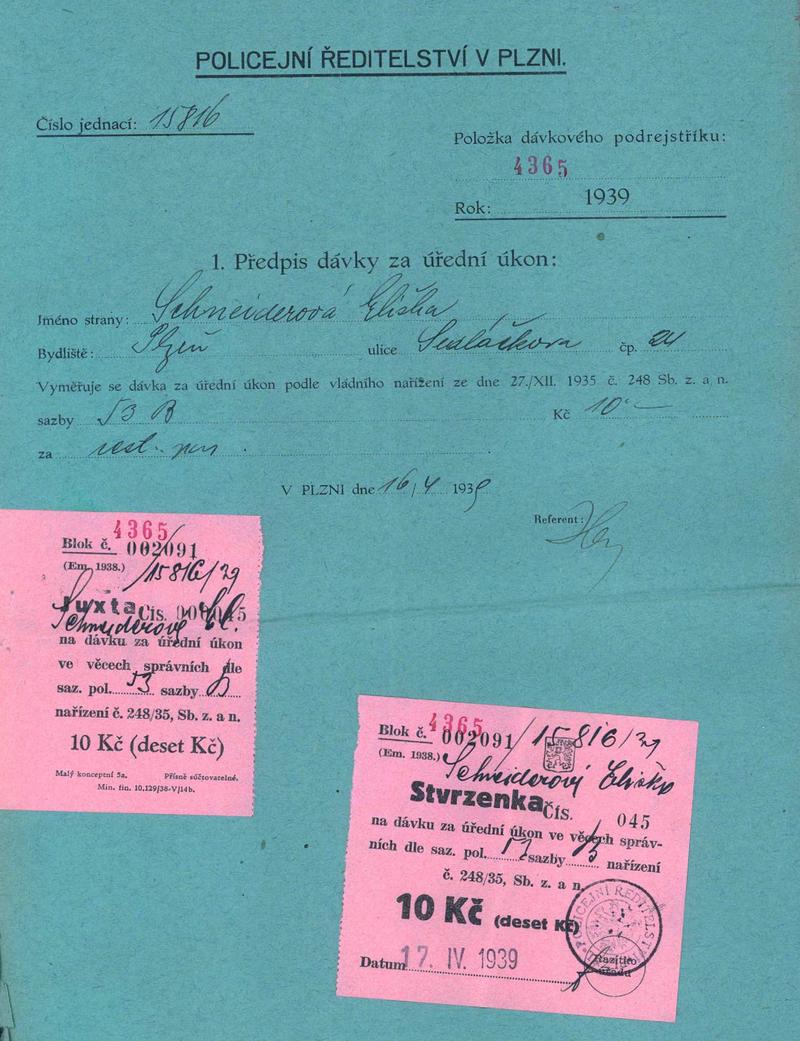 POLICEJNÍ ŘEDITELSTVÍ V PLZNI.
Číslo jednací: 15816
Položka dávkového podrejstříku:
4365
Rok: 1939
1. Předpis dávky za úřední úkon:
Jméno strany: Schneiderová Eliška
Bydliště: Plzeň ulice Sedláčkova čp. 24
Vyměřuje se dávka za úřední úkon podle vládního nařízení ze dne 27./XII. 1935 č. 248 Sb. z. a n.
sazby 53 B Kč 10'—
za
V PLZNI dne 16/4 1939
Referent:
4365
Blok č. 002091
(Em. 1938.) 15816/39
Juxta Čís. 000045
Schneiderová El.
na dávku za úřední úkon
ve věcech správních dle
saz. pol. 53 sazby B
nařízení č. 248/35, Sb. z. a n.
10 Kč (deset Kč)
Malý konceptní 5a. Přísně súčtovatelné.
Min. fin. 10.129/38-V/14b.
4365
Blok č. 002091 15816/39
(Em. 1938.) Schneiderová Eliška
Stvrzenka Čís. 045
na dávku za úřední úkon ve věcech správ-
ních dle saz. pol. 53 sazby B nařízení
č. 248/35, Sb. z. a n.
10 Kč (deset Kč)
POLICEJNÍ ŘEDITELSTVÍ
Datum 17. IV. 1939
Razítko
úřadu